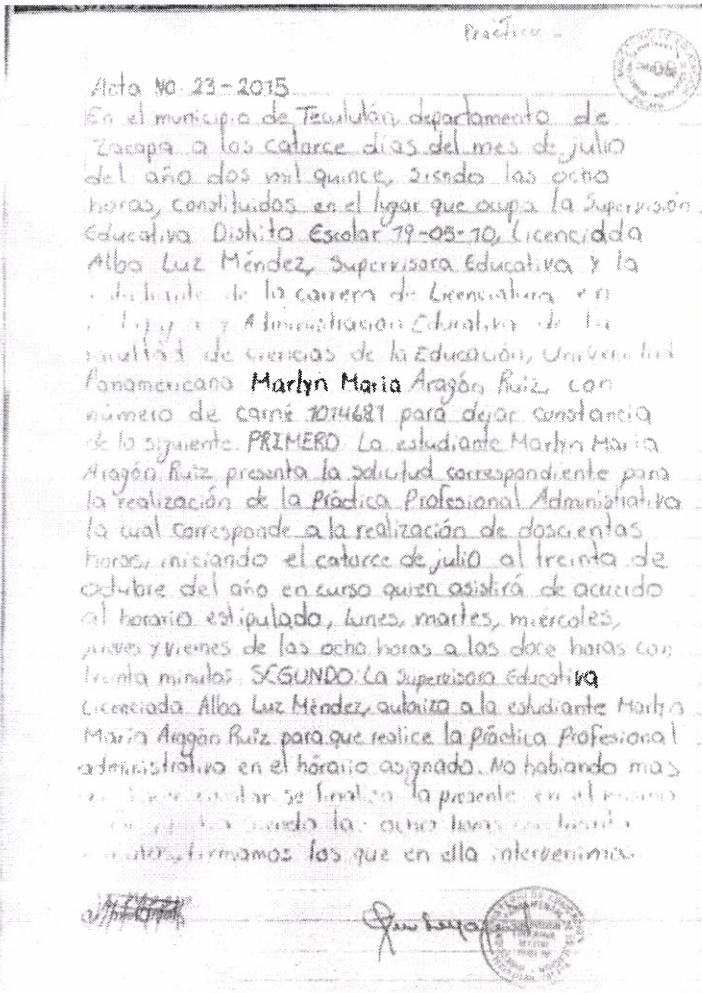 Práctica -
Acta No. 23-2015
En el municipio de Teculután, departamento de
Zacapa a los catorce días del mes de julio
del año dos mil quince, siendo las ocho
horas, constituidos en el lugar que ocupa la Supervisión
Educativa Distrito Escolar 19-05-10, Licenciada
Alba Luz Méndez, Supervisora Educativa y la
estudiante de la carrera de Licenciatura en
y Administración Educativa de la
facultad de Ciencias de la Educación, Universidad
Panamericana Marlyn Maria Aragón Ruiz, con
número de carné 1014681 para dejar constancia
de lo siguiente. PRIMERO: La estudiante Marlyn Maria
Aragón Ruiz presenta la solicitud correspondiente para
la realización de la Práctica Profesional Administrativa
la cual corresponde a la realización de doscientas
horas, iniciando el catorce de julio al treinta de
octubre del año en curso quien asistirá de acuerdo
al horario estipulado, lunes, martes, miércoles,
jueves y viernes de las ocho horas a las doce horas con
treinta minutos. SEGUNDO: La Supervisora Educativa
Licenciada Alba Luz Méndez, autoriza a la estudiante Marlyn
Maria Aragón Ruiz para que realice la Práctica Profesional
administrativa en el hórario asignado. No habiendo mas
que hacer constar se finaliza la presente en el mismo
siendo las ocho horas con treinta
minutos, firmamos los que en ella intervenimos.